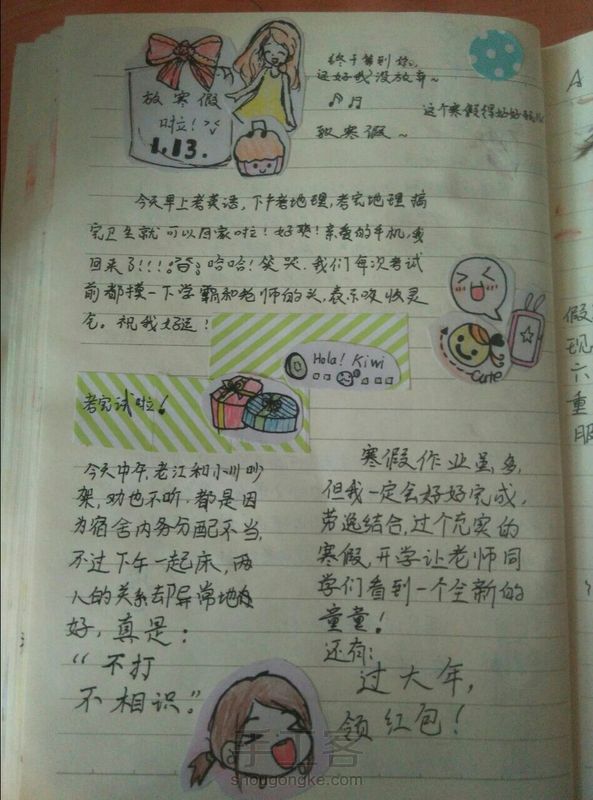 放寒假
啦!
1.13.
终于等到你,
还好我没放弃~
致寒假~
这个寒假得好好
今天早上考英语,下午考地理,考完地理搞
完卫生就可以回家啦!好爽!亲爱的手机,我
回来了!!!哈哈!笑哭.我们每次考试
前都摸一下学霸和老师的头,表示吸收灵
气。祝我好运!
Hola! Kiwi
cute
考完试啦!
今天中午,老江和小川吵
架,劝也不听,都是因
为宿舍内务分配不当,
不过下午一起床,两
人的关系却异常地
好,真是:
“不打
不相识。”
寒假作业虽多,
但我一定会好好完成,
劳逸结合,过个充实的
寒假,开学让老师同
学们看到一个全新的
童童!
还有:
过大年,
领红包!
A
假
现
六
重
服
手工客
shougongke.com